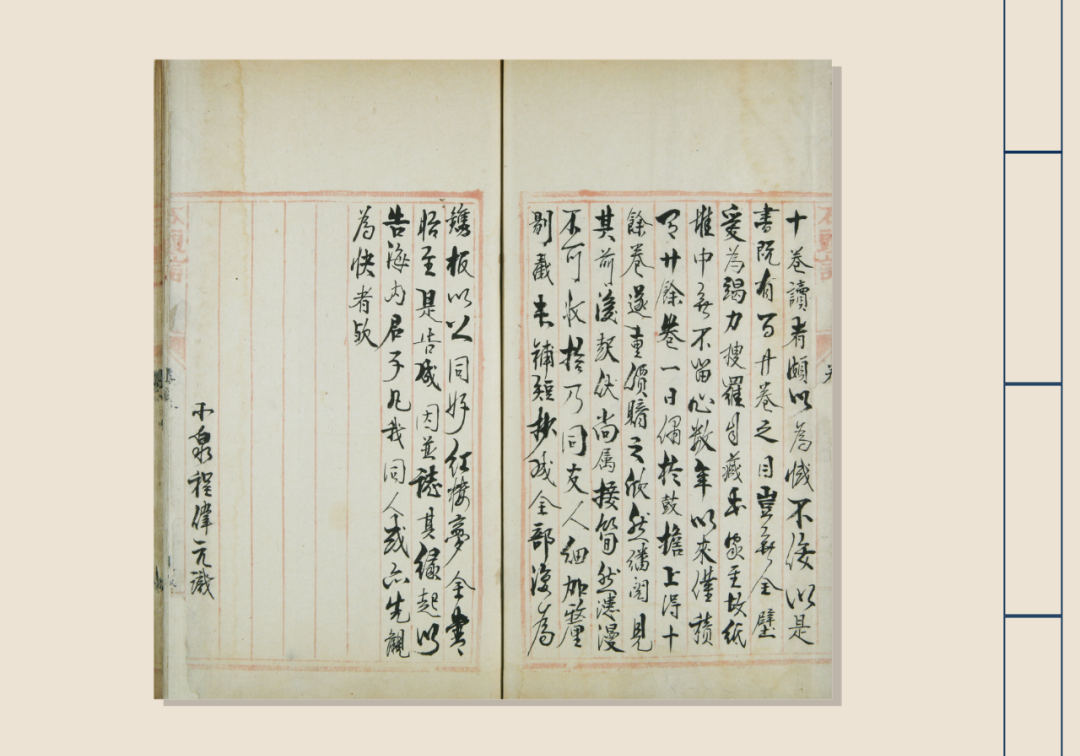 十卷讀者頗以為憾不佞以是
書既有百廿卷之目豈無全璧
爰為竭力搜羅自藏書家至故紙
堆中無不留心數年以來僅積
有廿餘卷一日偶於鼓擔上得十
餘卷遂重價購之欣然繙閱見
其前後起伏尚属接筍然漶漫
不可收拾乃同友人細加釐
剔截長補短抄成全部復為
鐫板以公同好紅樓夢全書
始至是告成因並誌其緣起以
告海内君子凡我同人或亦先覩
為快者歟
小泉程偉元識